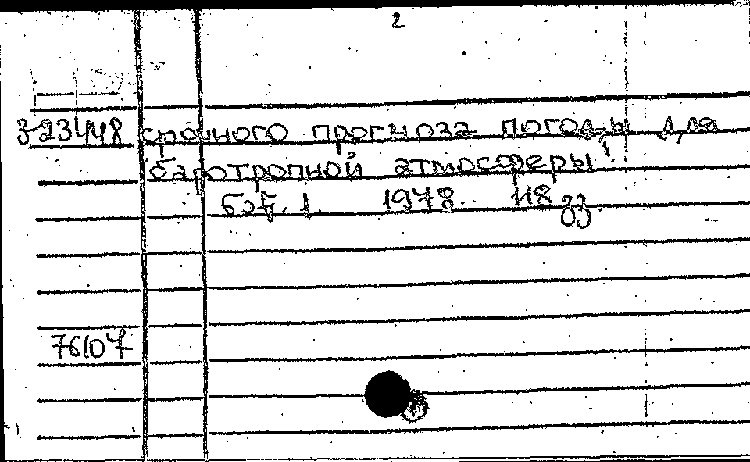 2
3-23448 срочного прогноза погоды для
баротропной атмосферы
1978 118
76107